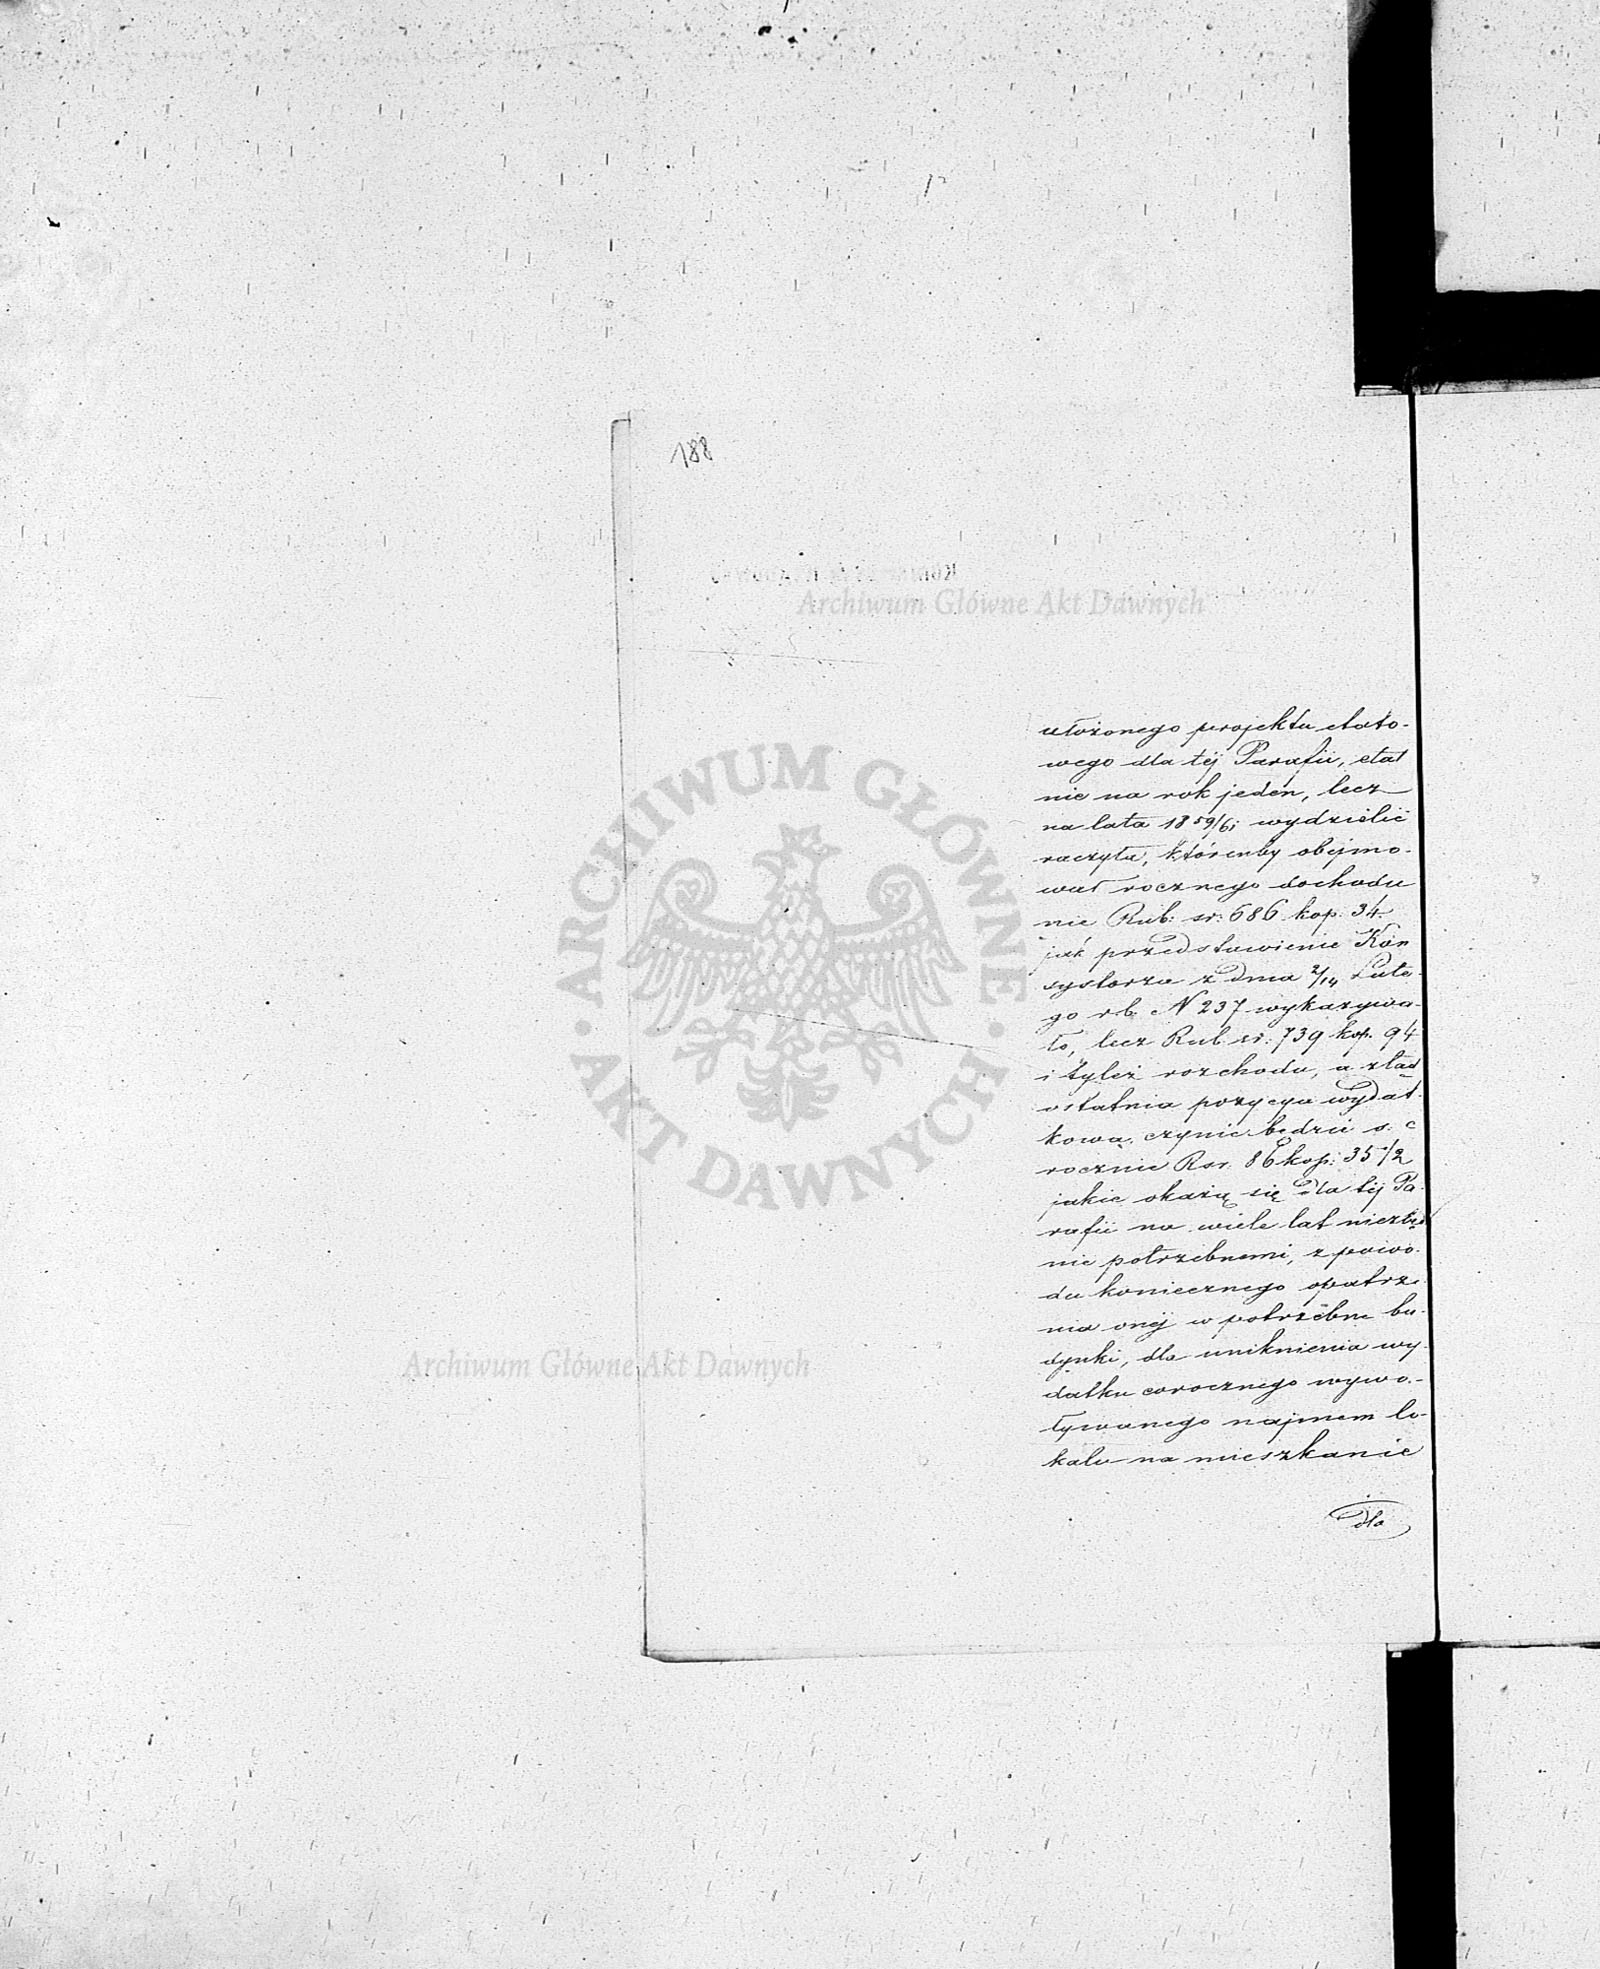 188
Archiwum Główne Akt Dawnych
ARCHIWUM GŁÓWNE · AKT DAWNYCH ·
ułożonego projektu etato-
wego dla téj Parafii, etat
nie na rok jeden, lecz
na lata 1859/61 wydzielić
raczyła, którenby obejmo-
wał rocznego dochodu
nie Rub: sr: 686 kop: 34.
jak przedstawienie Kon
systorza z dnia 2/14 Lute-
go r.b. N 237 wykazywa-
ło, lecz Rub. sr: 739 kop. 94
i tyleż rozchodu, a ztąd
ostatnia pozycya wydat-
kowa, czynić będzie
rocznie Rsr. 86 kop: 35 1/2
jakie okażą się dla téj Pa-
rafii na wiele lat niezbę
nie potrzebnemi, z powo-
du koniecznego opatrze
nia onéj w potrzebne bu-
dynki, dla uniknienia wy-
datku corocznego wywo-
ływanego najmem lo-
kalu na mieszkanie
dla
Archiwum Główne Akt Dawnych